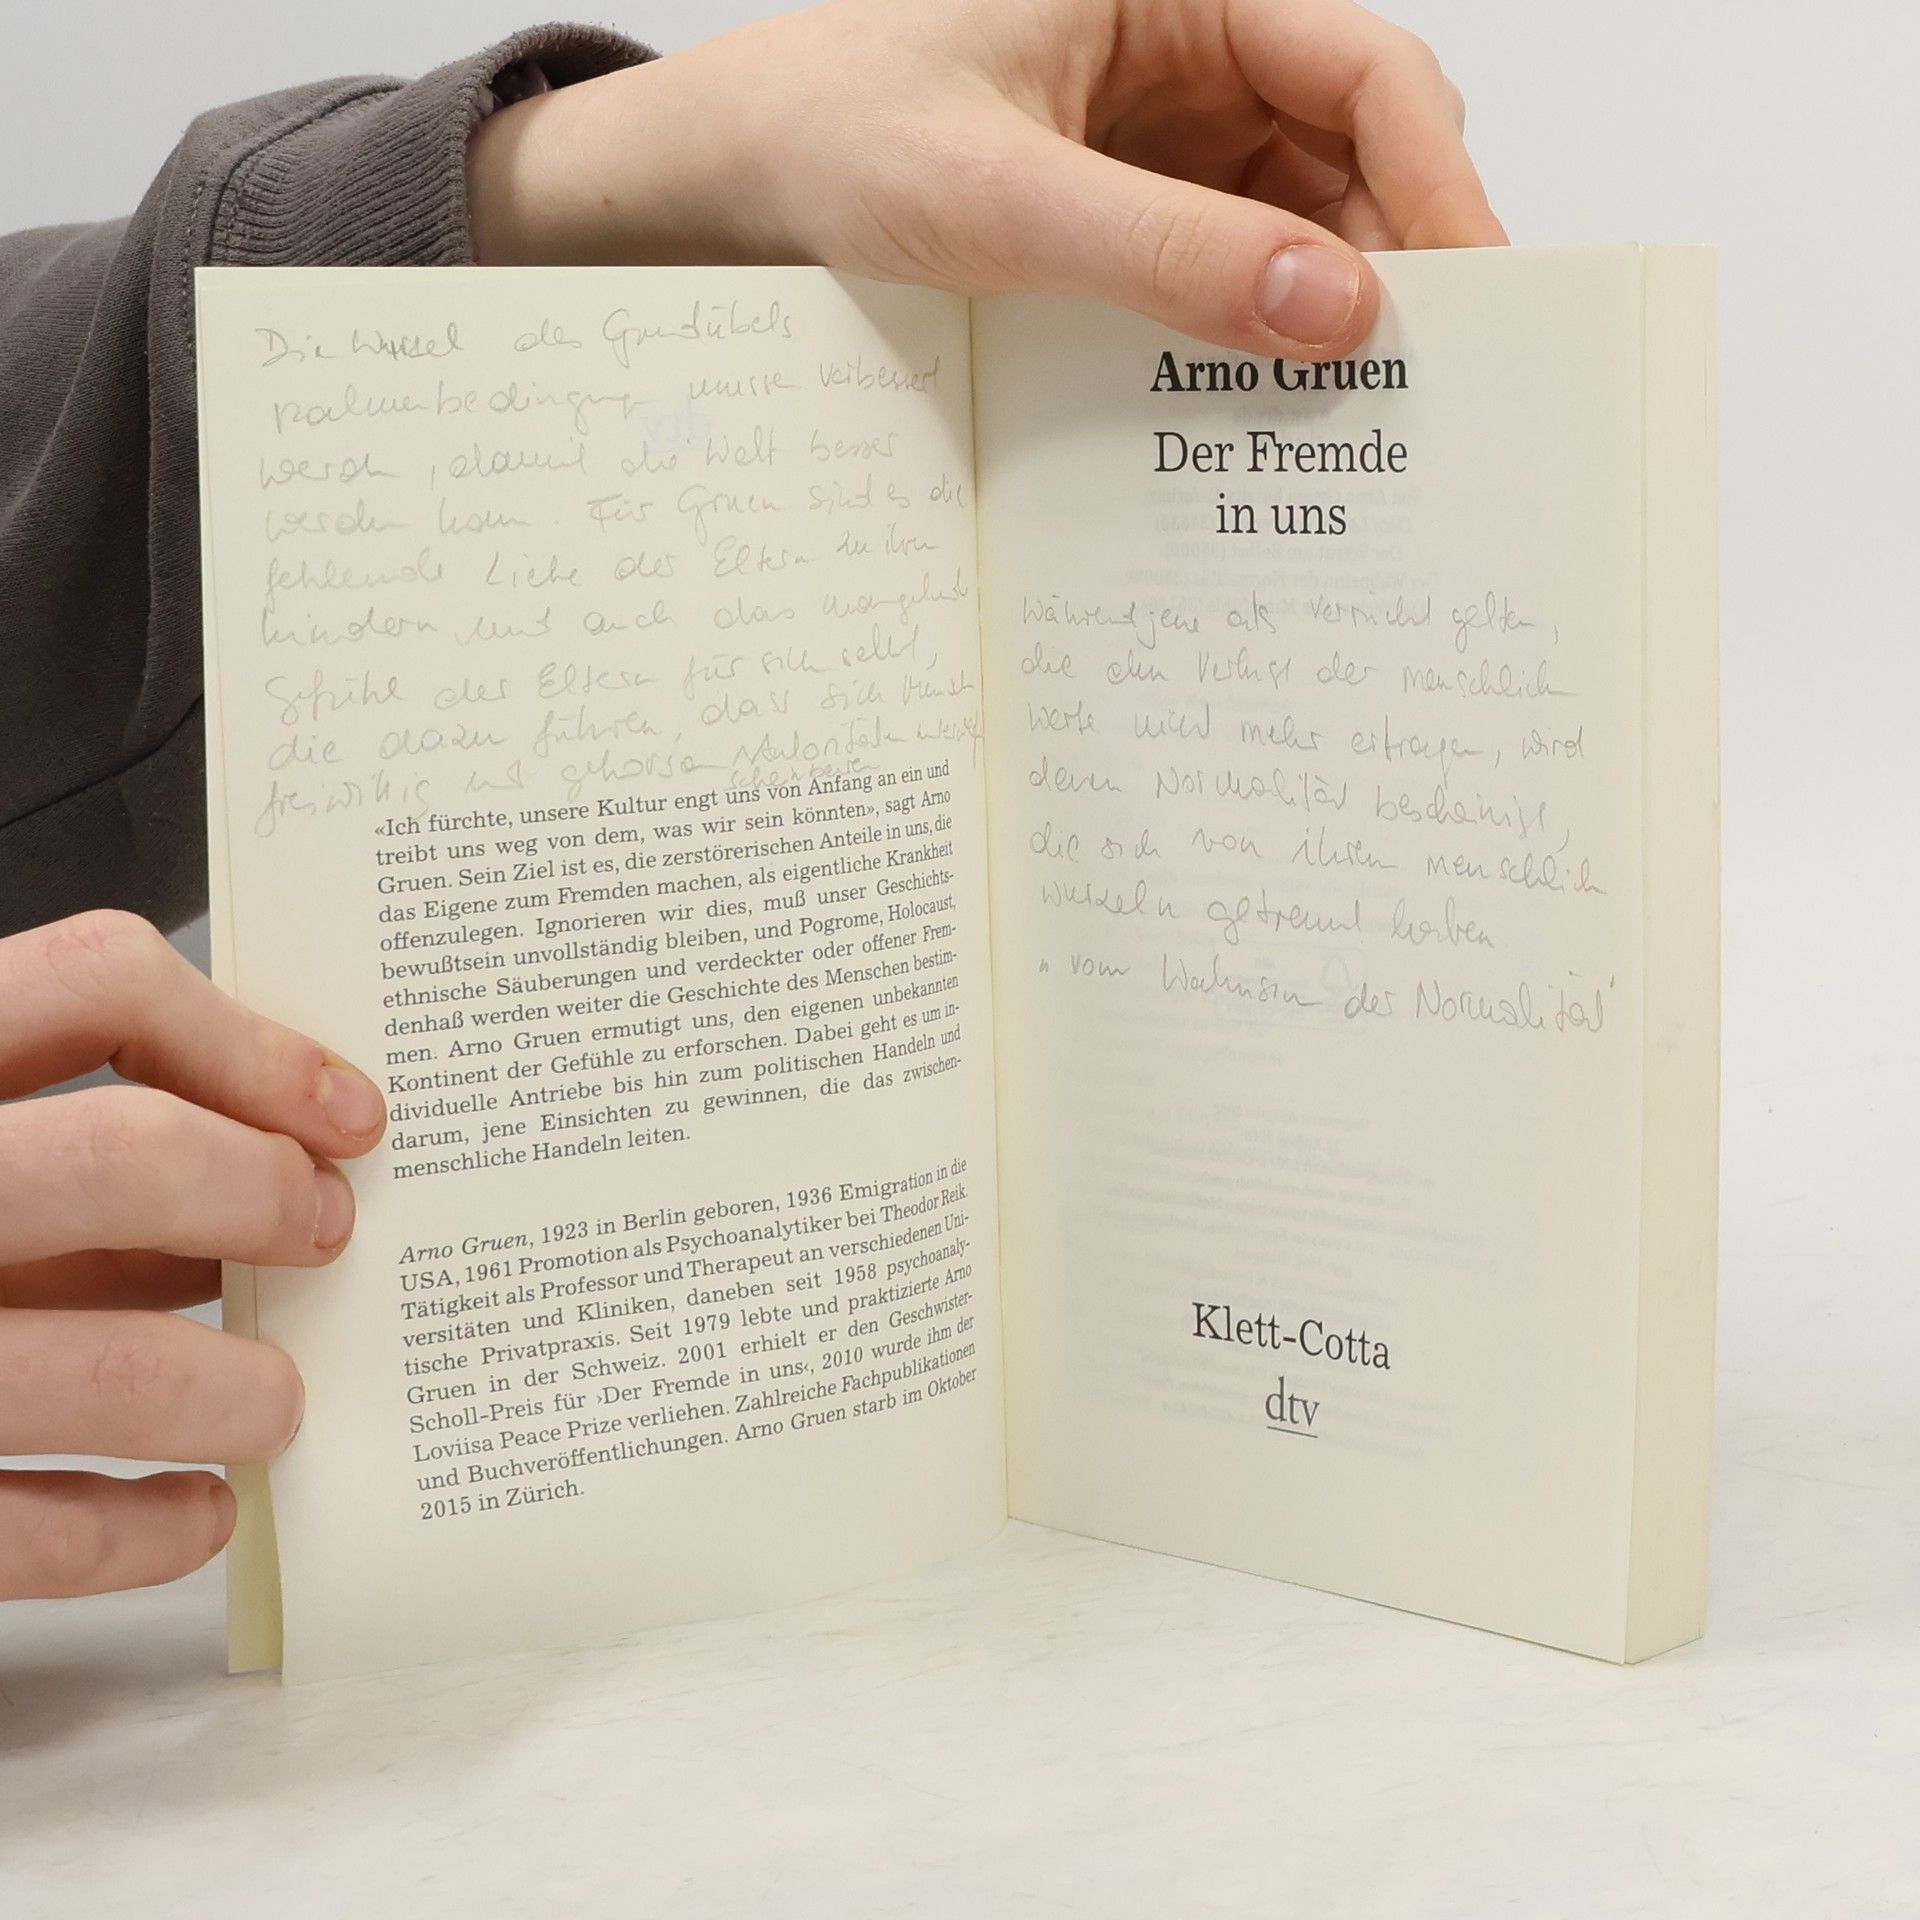 Die Wurzel des Grundübels
Rahmenbedingungen müssen verbessert
werden, damit die Welt besser
werden kann. Für Gruen sind es die
fehlende Liebe der Eltern zu ihren
Kindern, und auch das mangelnde
Gefühl der Eltern für sich selbst,
die dazu führen, dass sich Mensch
freiwillig und gehorsam Autoritäten unterwirft
scheinbaren
«Ich fürchte, unsere Kultur engt uns von Anfang an ein und
treibt uns weg von dem, was wir sein könnten», sagt Arno
Gruen. Sein Ziel ist es, die zerstörerischen Anteile in uns, die
das Eigene zum Fremden machen, als eigentliche Krankheit
offenzulegen. Ignorieren wir dies, muß unser Geschichts-
bewußtsein unvollständig bleiben, und Pogrome, Holocaust,
ethnische Säuberungen und verdeckter oder offener Frem-
denhaß werden weiter die Geschichte des Menschen bestim-
men. Arno Gruen ermutigt uns, den eigenen unbekannten
Kontinent der Gefühle zu erforschen. Dabei geht es um in-
dividuelle Antriebe bis hin zum politischen Handeln und
darum, jene Einsichten zu gewinnen, die das zwischen-
menschliche Handeln leiten.
Arno Gruen, 1923 in Berlin geboren, 1936 Emigration in die
USA, 1961 Promotion als Psychoanalytiker bei Theodor Reik.
Tätigkeit als Professor und Therapeut an verschiedenen Uni-
versitäten und Kliniken, daneben seit 1958 psychoanaly-
tische Privatpraxis. Seit 1979 lebte und praktizierte Arno
Gruen in der Schweiz. 2001 erhielt er den Geschwister-
Scholl-Preis für ›Der Fremde in uns‹, 2010 wurde ihm der
Loviisa Peace Prize verliehen. Zahlreiche Fachpublikationen
und Buchveröffentlichungen. Arno Gruen starb im Oktober
2015 in Zürich.
Arno Gruen
Der Fremde
in uns
Während jene als verrückt gelten,
die den Verlust der menschlichen
Werte nicht mehr ertragen, wird
denen Normalität bescheinigt,
die sich von ihren menschlichen
Wurzeln getrennt haben
"vom Wahnsinn der Normalität"
Klett-Cotta
dtv